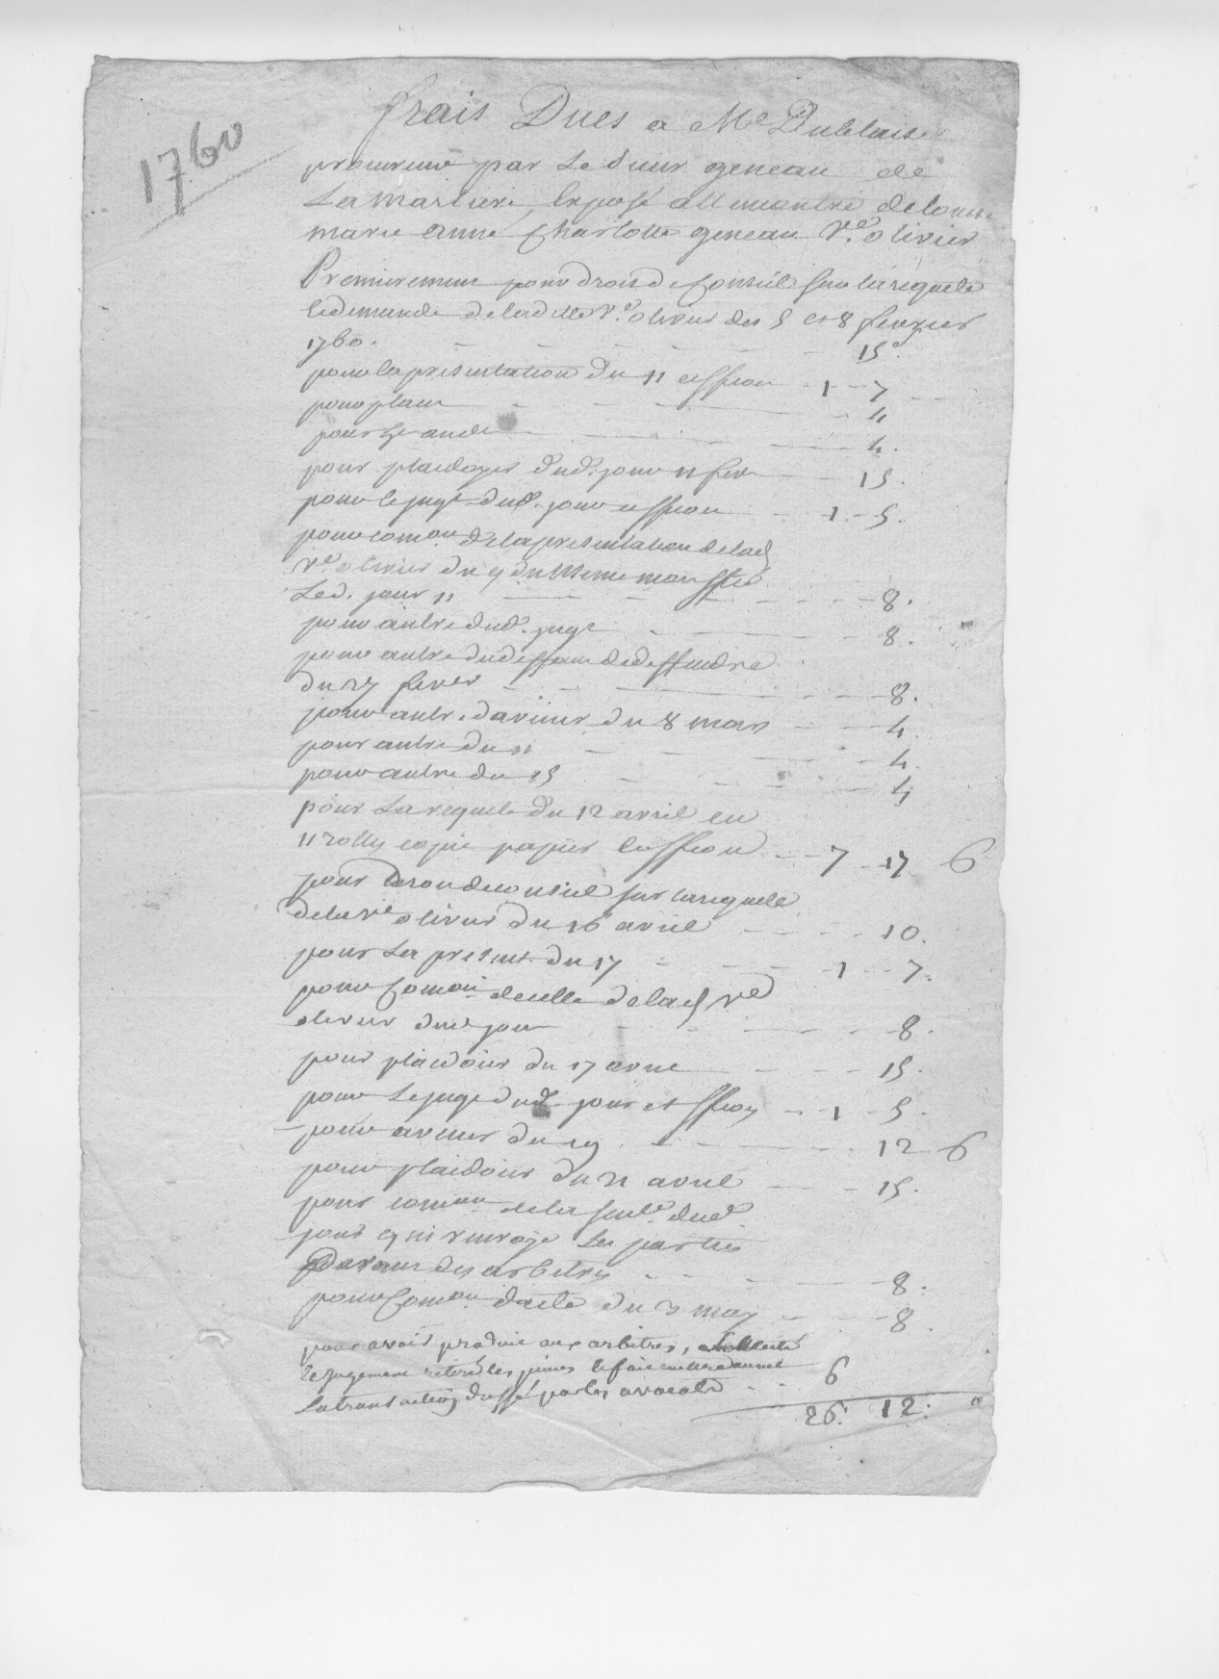 1760
frais Dues a Me Dublais
procureur par Le Sieur geneau de
Lamarliere, Exposé allencontre de
marie anne Charlotte geneau Ve. olivier
Premierement pour droit de Conseil sur la requete
de demande de ladite Ve. olivier des 5 et 8 fevrier
1760. 15.
pour la presentation du 11 1 7
pour 4
pour 4.
pour plaidoyer dud. jour 11 fev 15.
pour le jugt dud. jour 1 5.
pour comon de la presentation de lad
Ve olivier du 9 du meme mois
Led. jour 11 8.
pour autre dud. jugt 8.
pour autre du deffaut de deffendre
du 27 fever 8.
pour autre davenir du 8 mars 4.
pour autre du 11 4.
pour autre du 15 4
pour La requete du 12 avril en
11 rolles copie papier 7 17 6
pour droit de conseil sur la requete
de la ve olivier du 16 avril 10.
pour La present. du 17 1 7.
pour Comon de celle de lad ve
olivier dud jour 8.
pour plaidoier du 17 avril 15.
pour Le jugt dud. jour et 1 5.
pour avenir du 19 12 6
pour plaidoier du 21 avril 15.
pour comon de la sente. dud.
jour qui renvoye Les parties
Devant des arbitres 8.
pour Comon dacte du 3 may 8.
pour avoir produit aux arbitres,
le jugement retiré les pieces
la transaction dressé par les avocats 6
26. 12.